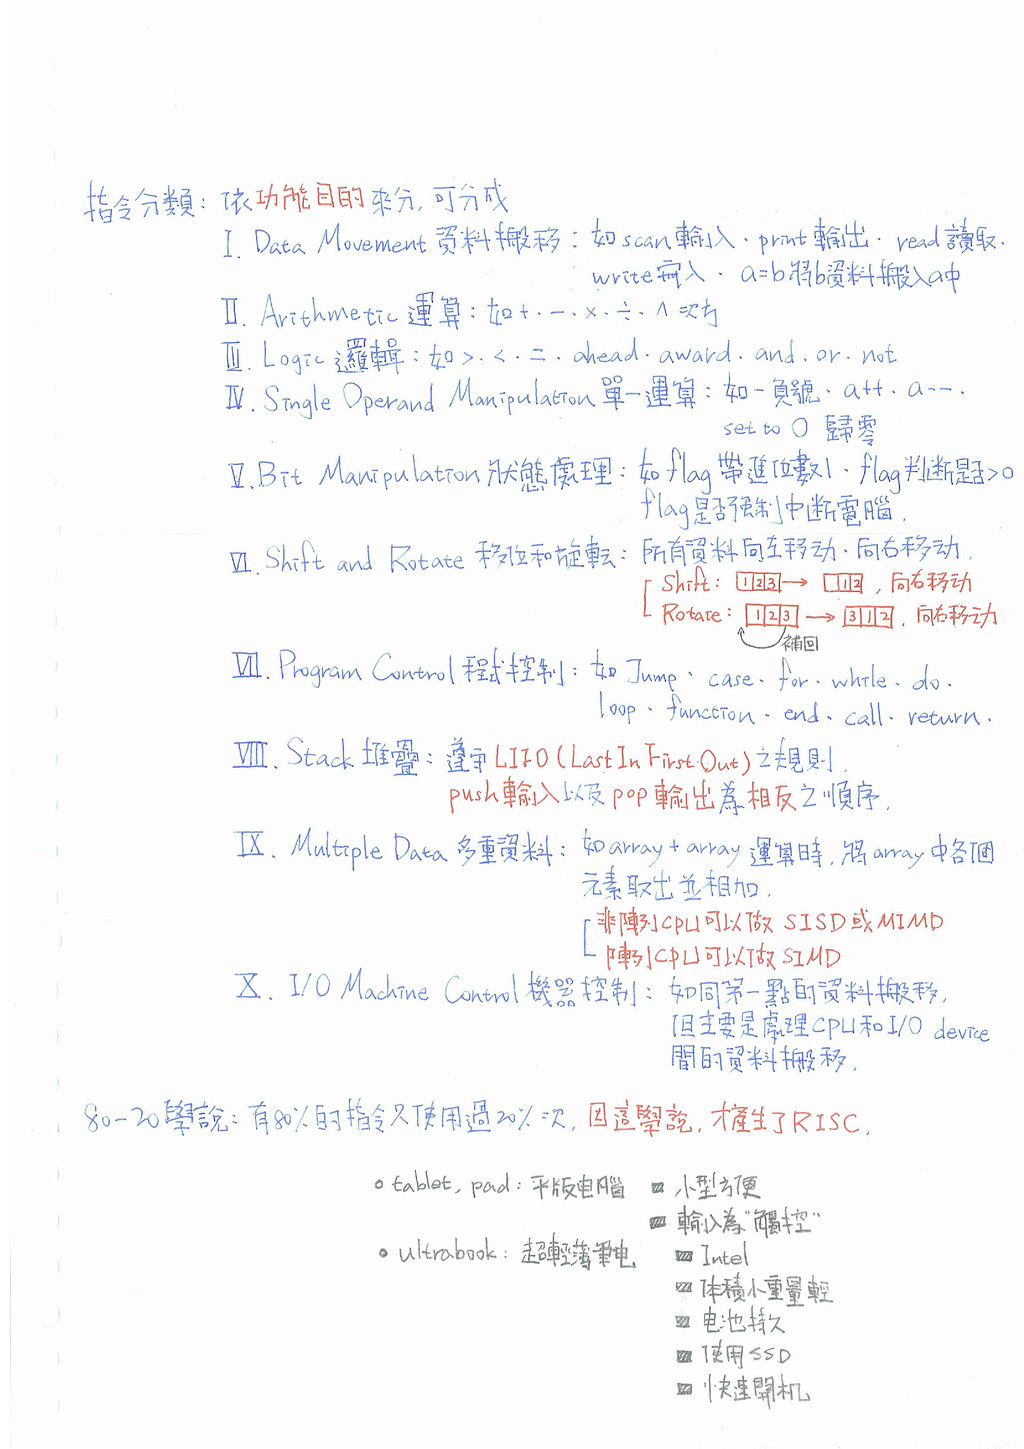 指令分類：依功能目的來分，可分成
I. Data Movement 資料搬移：如scan輸入、print輸出、read讀取、
write寫入、a=b將b資料搬入a中
II. Arithmetic 運算：如+、-、×、÷、^次方
III. Logic 邏輯：如>、<、=、ahead、award、and、or、not
IV. Single Operand Manipulation 單一運算：如-負號、a++、a--、
set to 0 歸零
V. Bit Manipulation 狀態處理：如flag帶進位數1、flag判斷是否>0
flag是否強制中斷電腦.
VI. Shift and Rotate 移位和旋転：所有資料向左移动、向右移动.
Shift: 1 2 3 → 1 2 , 向右移动
Rotate: 1 2 3 → 3 1 2 , 向右移动
補回
VII. Program Control 程式控制：如Jump、case、for、while、do、
loop、function、end、call、return.
VIII. Stack 堆疊：遵守LIFO(Last In First Out)之規則.
push輸入以及pop輸出為相反之順序.
IX. Multiple Data 多重資料：如array+array運算時,將array中各個
元素取出並相加.
非陣列CPU可以做 SISD或MIMD
陣列CPU可以做SIMD
X. I/O Machine Control 機器控制：如同第一點的資料搬移,
但主要是處理CPU和I/O device
間的資料搬移.
80-20學說：有80%的指令只使用過20%次,因這學說,才產生了RISC.
tablet, pad：平版电腦 小型方便
輸入為"觸控"
ultrabook：超輕薄筆电 Intel
体積小重量輕
电池持久
使用SSD
快速開机